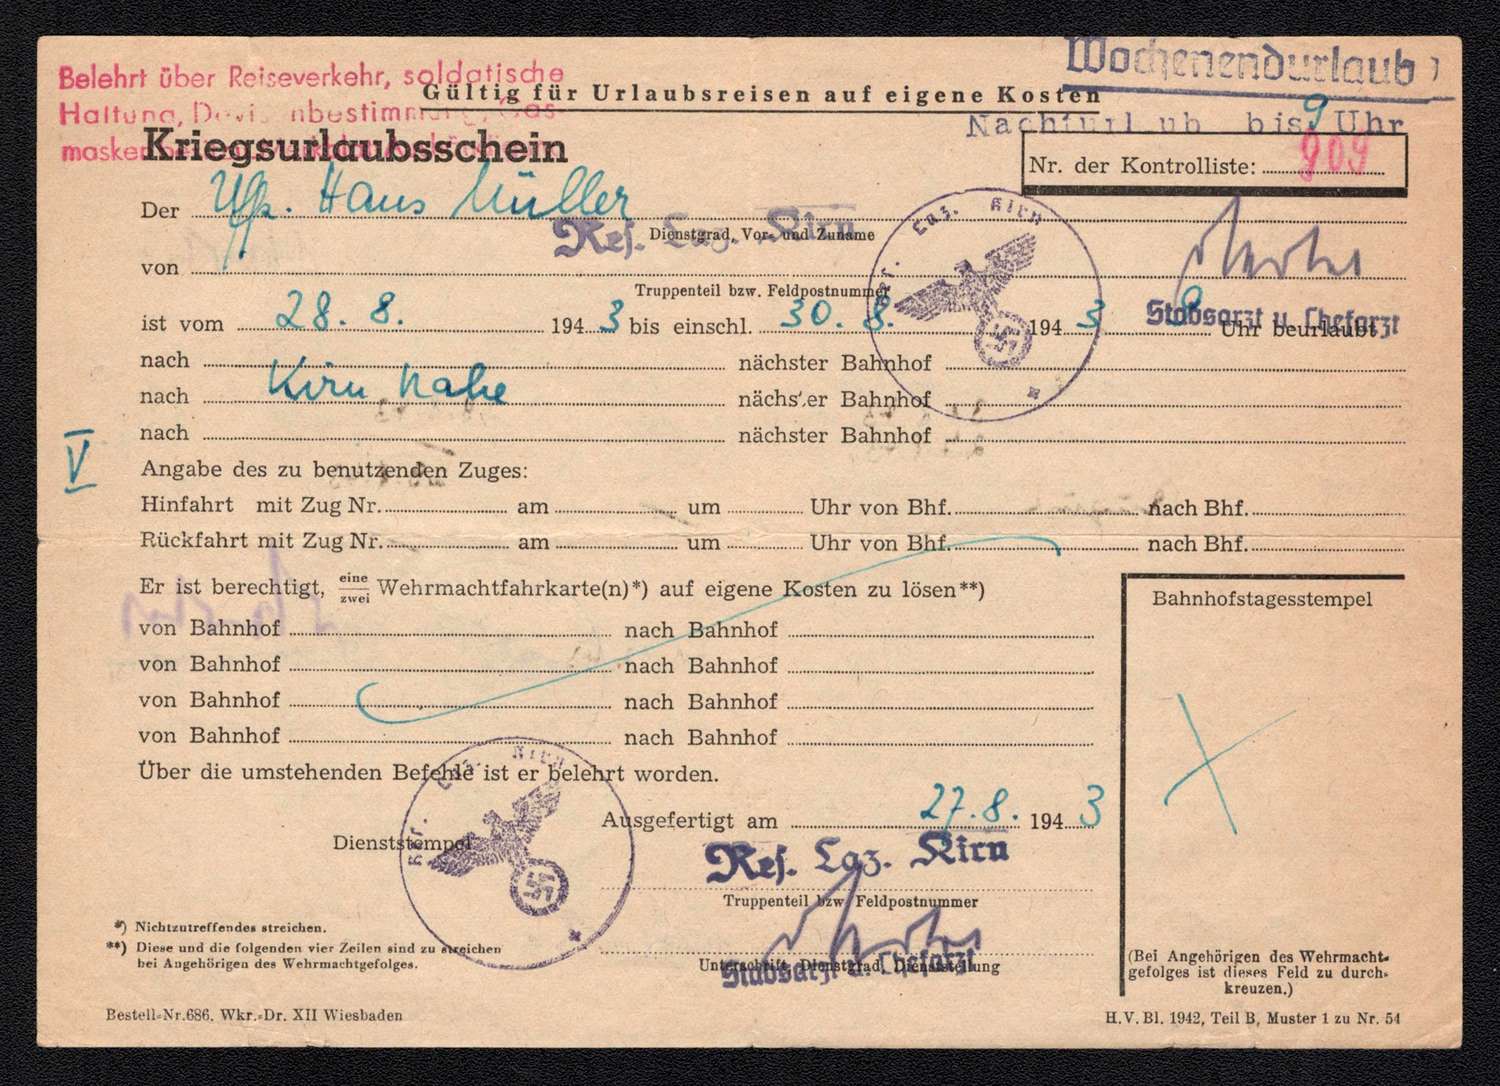 Belehrt über Reiseverkehr, soldatische
Haltung, Devisenbestimmung, Gas-
masken
Wochenendurlaub
Gültig für Urlaubsreisen auf eigene Kosten
Nachturlaub bis 9 Uhr
Kriegsurlaubsschein
Nr. der Kontrolliste: 909
Der Uffz. Hans Müller
Dienstgrad, Vor- und Zuname
von Res. Laz. Kirn
Res. Laz. Kirn
Truppenteil bzw. Feldpostnummer
Stabsarzt u. Chefarzt
ist vom 28. 8. 1943 bis einschl. 30. 8. 1943 9 Uhr beurlaubt
nach nächster Bahnhof
nach Kirn Nahe nächster Bahnhof
nach nächster Bahnhof
V
Angabe des zu benutzenden Zuges:
Hinfahrt mit Zug Nr. am um Uhr von Bhf. nach Bhf.
Rückfahrt mit Zug Nr. am um Uhr von Bhf. nach Bhf.
Er ist berechtigt, eine zwei Wehrmachtfahrkarte(n)*) auf eigene Kosten zu lösen**)
Bahnhofstagesstempel
von Bahnhof nach Bahnhof
von Bahnhof nach Bahnhof
von Bahnhof nach Bahnhof
von Bahnhof nach Bahnhof
Über die umstehenden Befehle ist er belehrt worden.
Ausgefertigt am 27. 8. 1943
Dienststempel
Res. Laz. Kirn
Res. Laz. Kirn
Truppenteil bzw. Feldpostnummer
Unterschrift, Dienstgrad, Dienststellung
Stabsarzt u. Chefarzt
*) Nichtzutreffendes streichen.
**) Diese und die folgenden vier Zeilen sind zu streichen
bei Angehörigen des Wehrmachtgefolges.
(Bei Angehörigen des Wehrmacht-
gefolges ist dieses Feld zu durch-
kreuzen.)
Bestell-Nr. 686. Wkr.-Dr. XII Wiesbaden
H.V. Bl. 1942, Teil B, Muster 1 zu Nr. 54